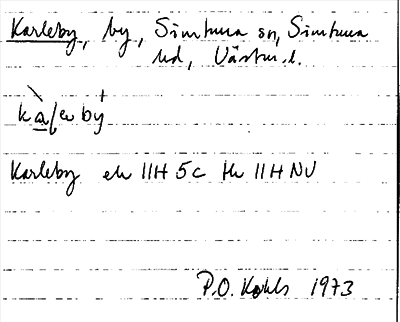 Karleby, by, Simtuna sn, Simtuna
hd, Västm. l.
Karleby ek 11H 5c tk 11H NV
P.O. Kohls 1973